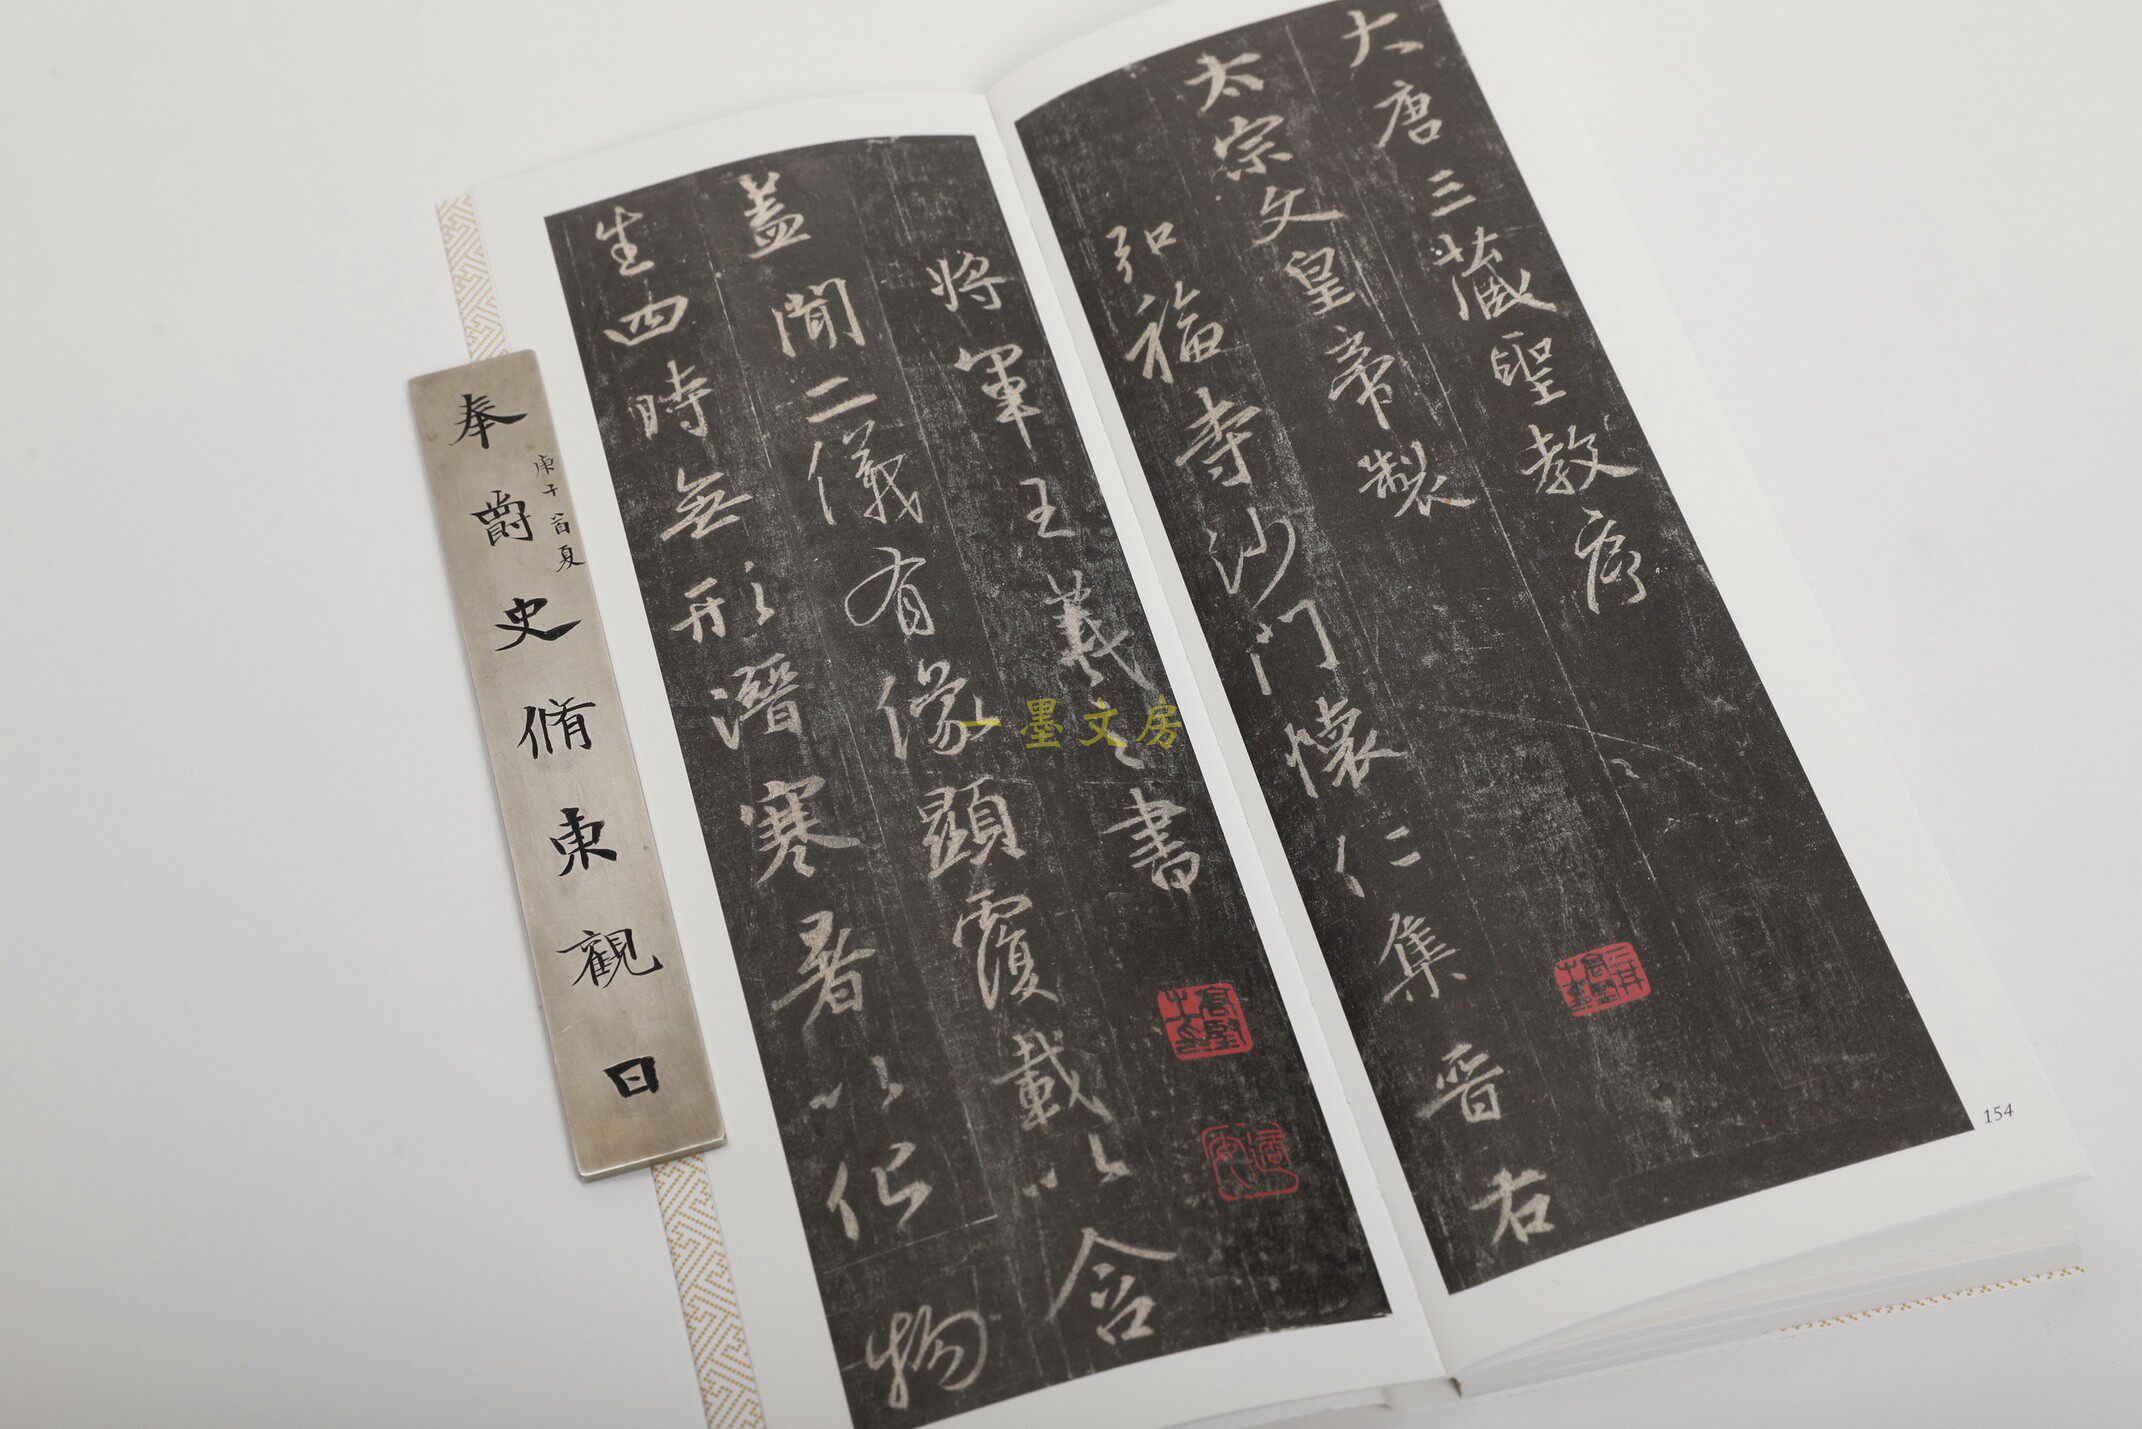 大唐三藏聖教序
太宗文皇帝製
弘福寺沙門懷仁集晉右
將軍王羲之書
蓋聞二儀有像顯覆載以含
生四時無形潛寒暑以化物
154
庚子首夏
奉爵史脩東觀
一墨文房